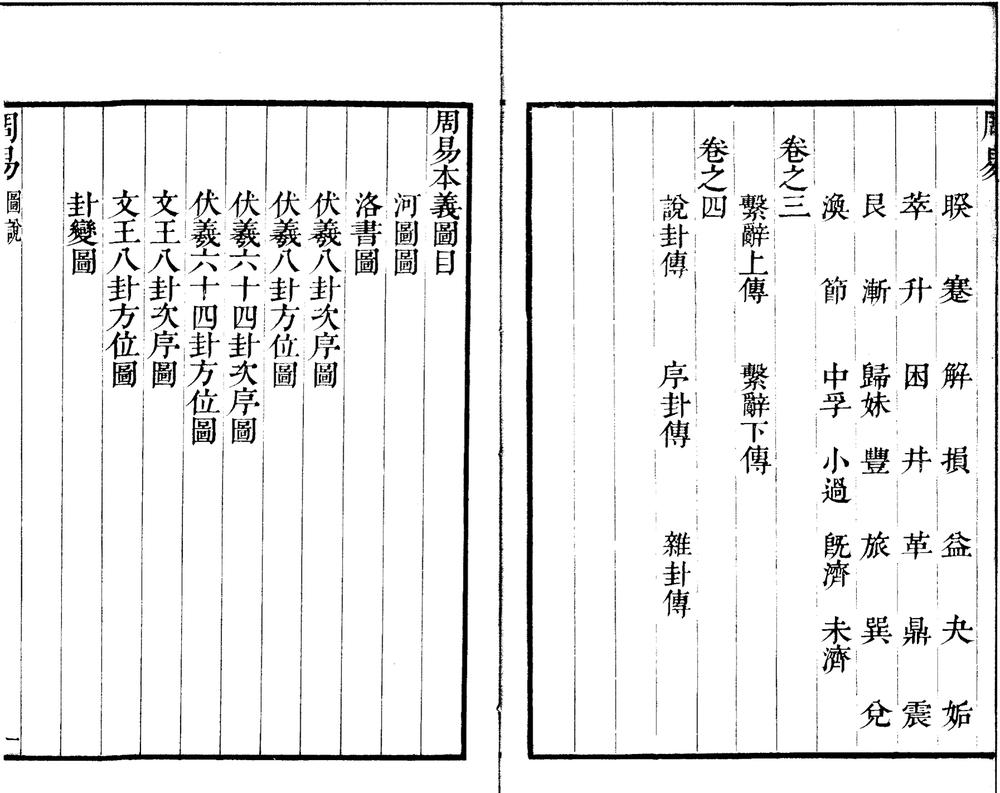 周易
睽 蹇 解 損 益 夬 姤
萃 升 困 井 革 鼎 震
艮 漸 歸妹 豐 旅 巽 兌
渙 節 中孚 小過 旣濟 未濟
卷之三
繫辭上傳 繫辭下傳
卷之四
說卦傳 序卦傳 雜卦傳
周易本義圖目
河圖圖
洛書圖
伏羲八卦次序圖
伏羲八卦方位圖
伏羲六十四卦次序圖
伏羲六十四卦方位圖
文王八卦次序圖
文王八卦方位圖
卦變圖
周易 圖說 一